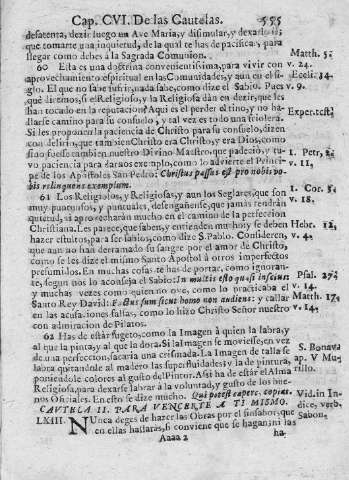 Cap. CVI. De las Cautelas. 555
desatenta, dezir luego un Ave Maria, y dissimular, y dexarlo si
que tomarte una inquietud, de la qual te has de pacificar para
llegar como debes à la Sagrada Comunion. Matth. 5.
60 Esta es una doctrina convenientissima, para vivir con v. 24.
aprovechamiento espiritual en las Comunidades, y aun en el si- Eccli. 34.
glo. El que no sabe sufrir, nada sabe, como dize el Sabio. Pues v. 9.
què dirèmos, si el Religioso, y la Religiosa dàn en dezir, que les
han tocado en la reputacion? Aqui es el perder el tino, y no ha- Exper. test.
llarse camino para su consuelo, y tal vez es todo una friolera.
Si les proponen la paciencia de Christo para su consuelo, dizen
con delirio, que tambien Christo era Christo, y era Dios, como
sino fuesse tambien nuestro Divino Maestro, que padeciò, y tu- 1. Petr. 2
vo paciencia para darnos exemplo, como lo advierte el Princi- v. 11.
pe de los Apostoles San Pedro: Christus passus est pro nobis vo-
bis relinquens exemplum.
61 Los Religiosos, y Religiosas, y aun los Seglares, que son 1. Cor. 5
muy puntosos, y puntuales, desengañense, que jamàs tendràn v. 18.
quietud, si aprovecharàn mucho en el camino de la perfeccion
Christiana. Les parece, que saben, y entienden mucho, y se deben Hebr. 12.
hazer estultos, para ser sabios, como dize S. Pablo. Consideren, v. 4.
que aun no han derramado su sangre por el amor de Christo,
como se les dize el mismo Santo Apostol à otros imperfectos
presumidos. En muchas cosas te has de portar, como ignoran-
te, segun nos lo aconseja el Sabio: In multis esto quasi inscius: Psal. 27
y muchas vezes como quien no oye, como lo practicaba el v. 14.
Santo Rey David: Factus sum sicut homo non audiens: y callar Matth. 17
en las acusaciones falsas, como lo hizo Christo Señor nuestro v. 14.
con admiracion de Pilatos.
62 Has de estàr sugeto, como la Imagen à quien la labra, y
al que la pinta, y al que la dora. Si la Imagen se moviesse, en vez S. Bonava
de una perfeccion, sacaria una crisinada. La Imagen de talla se ap. V Mu
labra quitandole al madero las superfluidades, y la de pintura, rillo.
poniendole colores al gusto del Pintor. Assi ha de estàr el Alma
Religiosa, para dexarse labrar à la voluntad, y gusto de los bue-
nos Oficiales. En esto se dize mucho. Qui potest capere, capiat. Vid. in In
CAUTELA II. PARA VENCERTE A TI MISMO. dice, verb.
LXIII. Nunca deges de hazer las Obras por el sinsabor, que Sabon.
en ellas hallaràs, si conviene que se hagan; ni las
Aaaa 2 ha